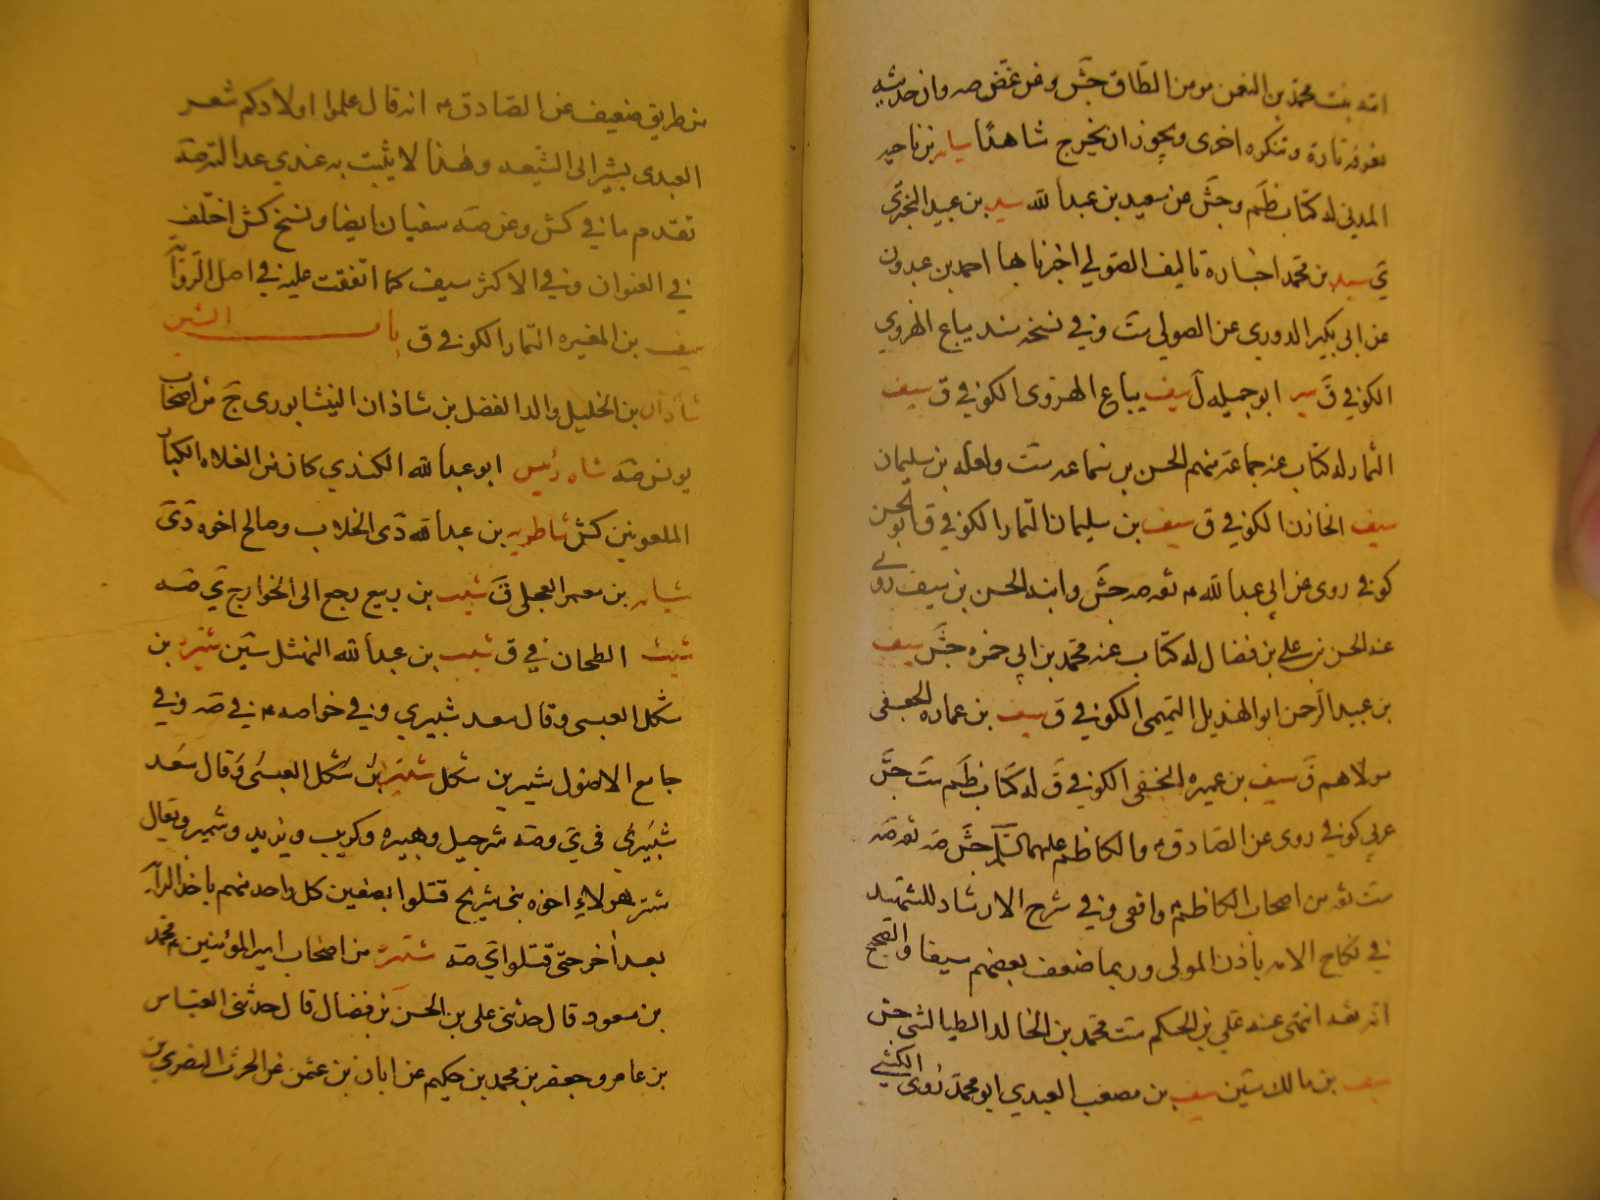 انه بنت محمد بن النعمن مومن الطاق جش وفى غض صه وان حديثه
نعرفه تارة وتنكره اخرى ويجوز ان يخرج شاهدا سيابه بن ناجيه
المدنى له كتاب ظم وجش عن سعيد بن عبد الله سيد بن عبيد
ى سيد بن محمد اخباره تاليف الصولي اخبرنا بها احمد بن عبدون
عن ابى بكير الدوري عن الصولي ست وفي نسخه سند بياع الهروي
الكوفي ق سير ابو جميله ل سيف بياع الهروى الكوفي ق سيف
التمار له كتاب عنه جماعة منهم الحسن بن سماعه ست ولعله بن سليمان
سيف الخازن الكوفي ق سيف بن سليمان التمار الكوفي ق ابو الحسن
كوفي روى عن ابي عبد الله ع ثقه صه جش وابنه الحسن بن سيف روى
عنه الحسن بن علي بن فضال له كتاب عنه محمد بن ابي حمزه جش سيف
بن عبيد الرحمن ابو الهذيل التميمى الكوفي ق سيف بن عماره الجعفى
مولاهم ق سيف بن عميره النخعى الكوفي ق له كتاب ظم ست جش
عربى كوفي روى عن الصادق ع والكاظم عليهما السلم جش صه ثقه صه
ست ثقه من اصحاب الكاظم ع واقفى وفي شرح الارشاد للشهيد
في نكاح الامه باذن المولى وربما ضعف بعضهم سيفا والصحيح
انه ثقه انتهى عنه علي بن الحكم ست محمد بن الخالد الطيالسى جش
سيف بن مالك سين سيف بن مصعب العبدي ابو محمد ق روى الكشي
من طريق ضعيف عن الصادق ع انه قال علموا اولادكم شعر
العبدى يشير الى الشيعه وهذا لا يثبت به عندي عدالته صه
تقدم ما في كش وعن صه سفيان ايضا ونسخ كش اختلف
في العنوان وفي الاكثر سيف كما اتفقت عليه في اصل الروايه
سيف بن المغيره التمار الكوفي ق باب الشين
شاذان بن الخليل والد الفضل بن شاذان النيشابورى ج من اصحاب
يونس صه شاه رئيس ابو عبد الله الكندي كان من الغلاة الكبار
الملعونين كش شاطر بن عبد الله دى الخلاب وصالح اخوه دى
بن معمر العجلى ق شبث بن ربيع رجع الى الخوارج ى صه
الطحان في ق شبيب بن عبد الله النهشلى سين شتير بن
شكل العبسى وقال سعد شبيري وفي خواصه ع في صه وفي
جامع الاصول شتير بن شكل شتير بن شكل العبسى وقال سعد
شبيري في ى وصه شرحبيل وهبيره وكريب ويزيد وشمير ويقال
شتر هولاء اخوه بنى شريح قتلوا بصفين كل واحد منهم ياخذ الرايه
بعد اخر حتى قتلوا ى صه شتيره من اصحاب امير المؤمنين ع محمد
بن مسعود قال حدثنى علي بن الحسن بن فضال قال حدثنى العباس
بن عامر وجعفر بن محمد بن حكيم عن ابان بن عثمن عن الحرث النصري بن